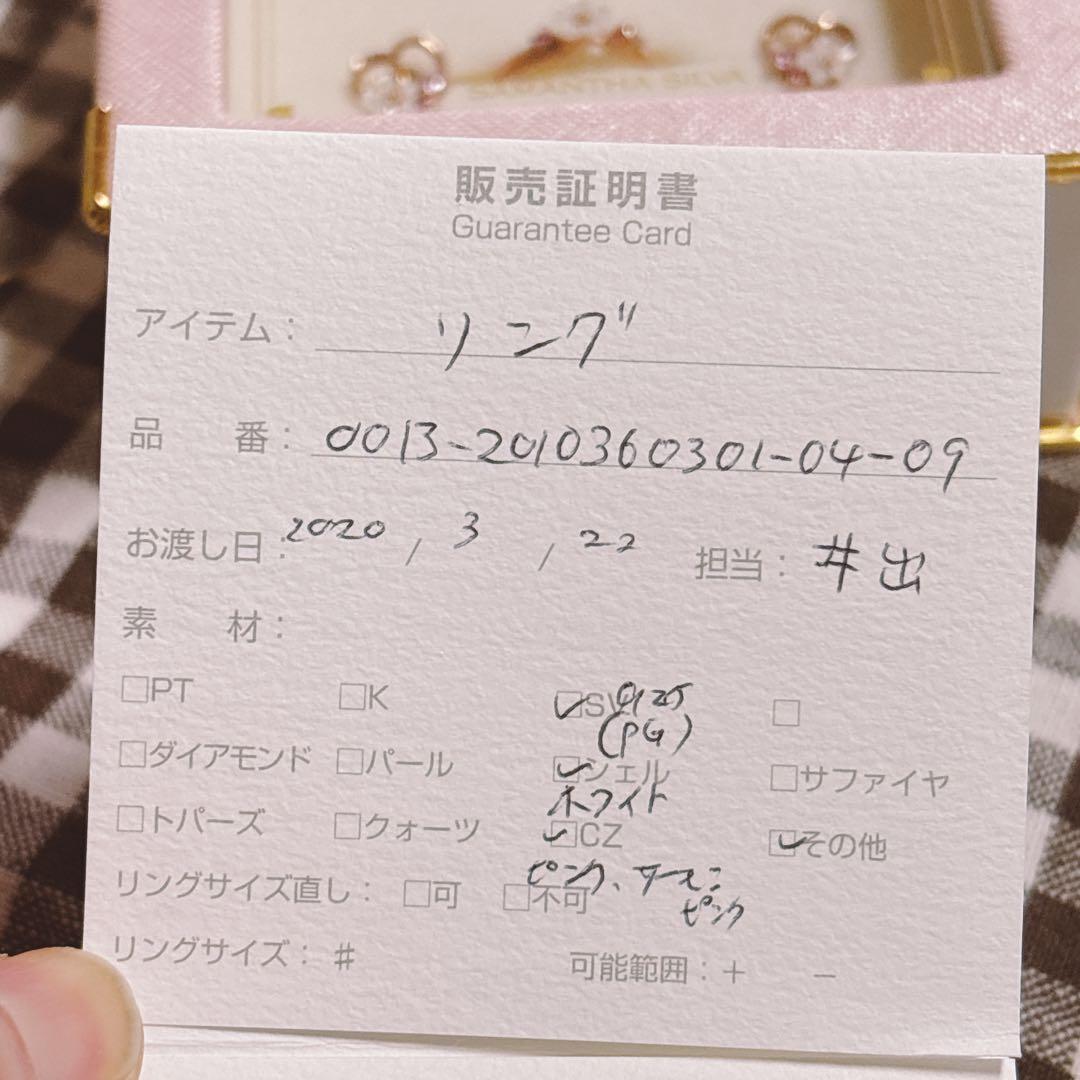 SAMANTHA SILVA
販売証明書
Guarantee Card
アイテム： リング
品 番： 0013-2010360301-04-09
お渡し日： 2020 / 3 / 22 担当： 井出
素 材：
□PT □K ☑SV 925 □
(PG)
□ダイアモンド □パール ☑シェル □サファイヤ
ホワイト
□トパーズ □クォーツ ☑CZ ☑その他
ピンク、
ピンク
リングサイズ直し： □可 □不可
リングサイズ： # 可能範囲：＋ －